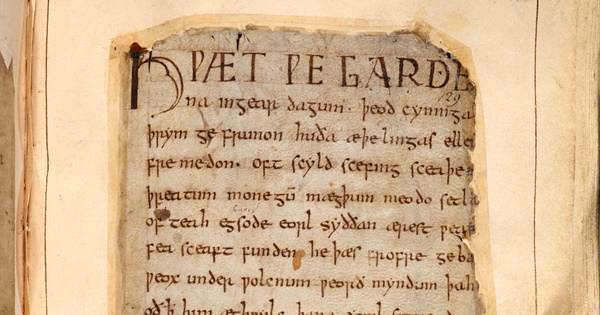 HǷÆT ǷE GARDE
na ingear dagum · þeod cyninga
þrym ge frunon huða æþelingas elle
fremedon · oft scyld scefing sceaþe
þreatum monegū mægþum meodo setla
of teah egsode eorl syððan ærest ƿear
fea sceaft funden he þæs frofre geba
ƿeox under ƿolcnum ƿeorð myndum þah
oð ꝥ him æghƿylc þara